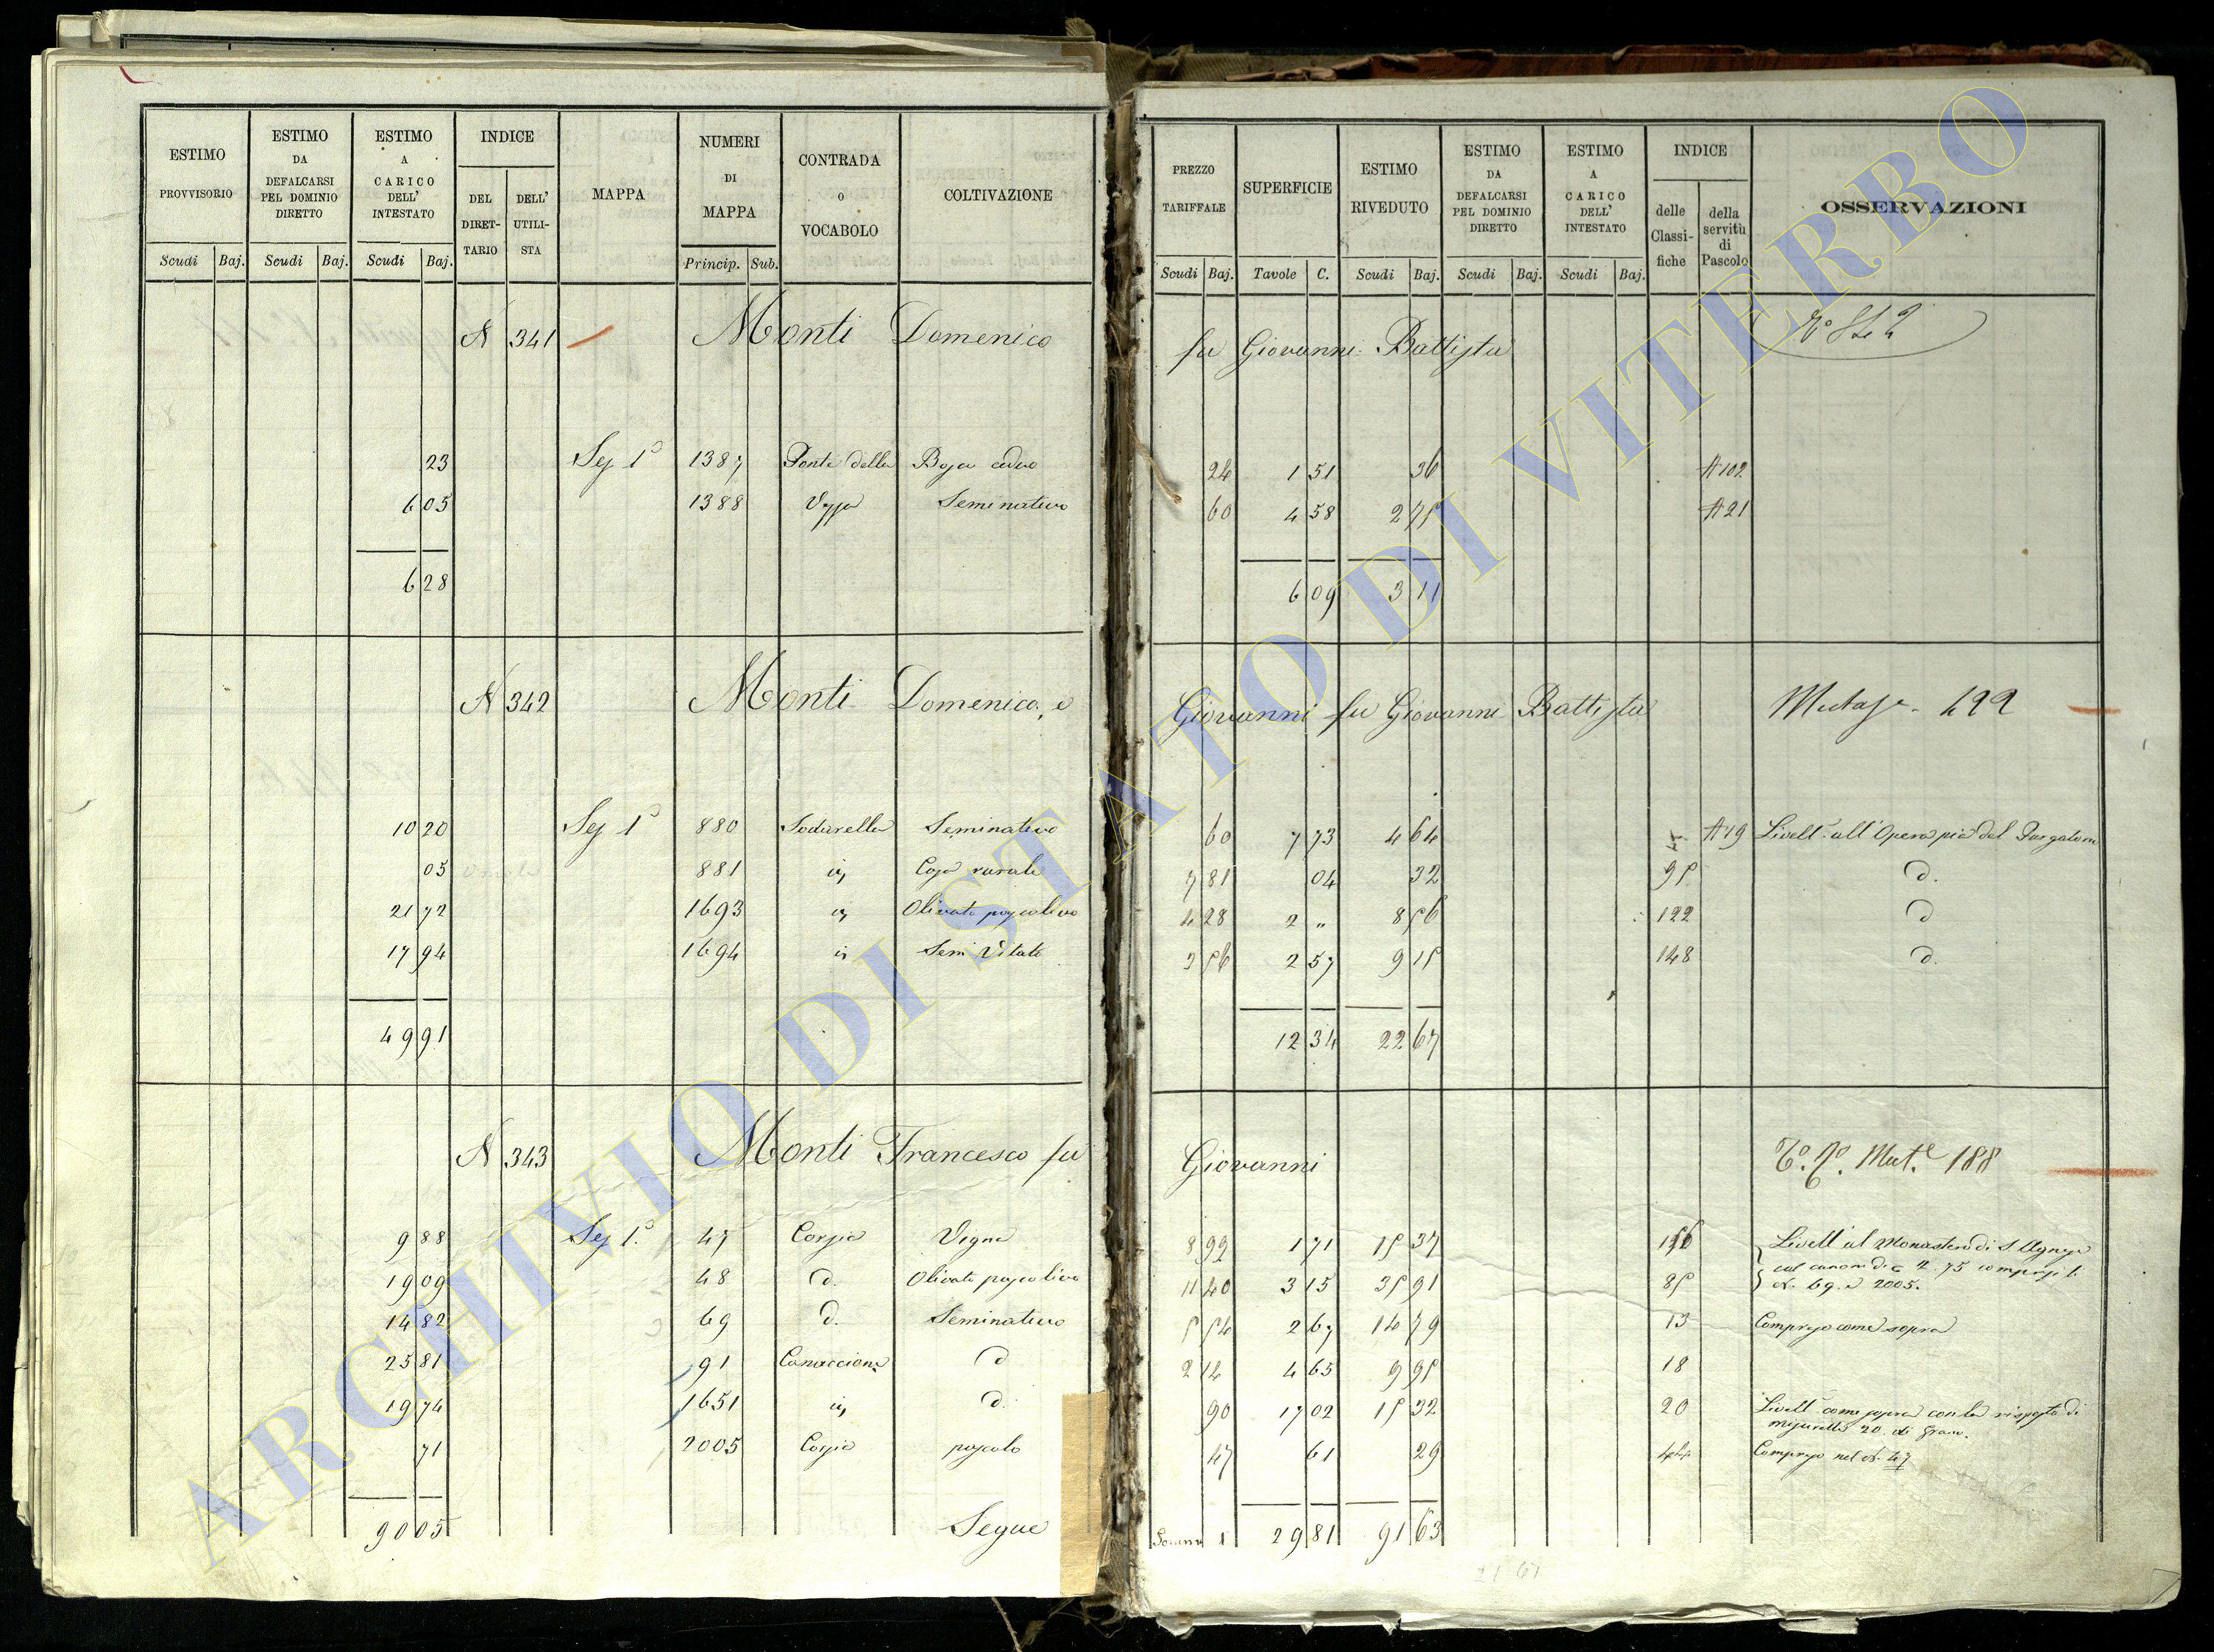 ESTIMO PROVVISORIO
ESTIMO DA DEFALCARSI PEL DOMINIO DIRETTO
ESTIMO A CARICO DELL' INTESTATO
INDICE
DEL DIRET-TARIO
DELL' UTILI-STA
MAPPA
NUMERI DI MAPPA
CONTRADA O VOCABOLO
COLTIVAZIONE
Scudi Baj. Scudi Baj. Scudi Baj. Princip. Sub.
PREZZO TARIFFALE
SUPERFICIE
ESTIMO RIVEDUTO
ESTIMO DA DEFALCARSI PEL DOMINIO DIRETTO
ESTIMO A CARICO DELL' INTESTATO
INDICE
delle Classi-fiche
della servitù di Pascolo
OSSERVAZIONI
Scudi Baj. Tavole C. Scudi Baj. Scudi Baj. Scudi Baj.
N 341 Monti Domenico fu Giovanni Battista
23 Sez 1ª 1387 Ponte della 24 1 51 36 A 102
6 05 1388 Seminativo 60 4 58 2 75 A 21
6 28 6 09 3 11
N 342 Monti Domenico, e Giovanni fu Giovanni Battista 422
10 20 Sez 1ª 880 Sodarella Seminativo 60 7 73 4 64 A 19 Livell. all' Opera pia del Purgatorio
05 881 Casa rurale 7 81 04 32 95 d.
21 72 1693 Olivato pascolivo 4 28 2 „ 8 56 122 d
17 94 1694 Sem Vitato 3 56 2 57 9 15 148 d.
49 91 12 34 22 67
N 343 Monti Francesco fu Giovanni Mut.e 188
9 88 Sez 1ª 47 Vigna 8 99 1 71 15 37 Livell al Monastero di S Agnese
19 09 48 d. Olivato pascolivo 11 40 3 15 35 91 85 col canone di 2.75 compresi li N. 69. e 2005.
14 82 69 d. Seminativo 5 54 2 67 14 79 13 Compreso come sopra
25 81 91 d 2 14 4 65 9 95 18
19 74 1651 d. 90 17 02 15 32 20 Livell come sopra con la risposta di
20 di Grano.
71 2005 pascolo 47 61 29 44 Compreso nel N. 47
90 05 Segue Somma 29 81 91 63
21 67
ARCHIVIO DI STATO DI VITERBO